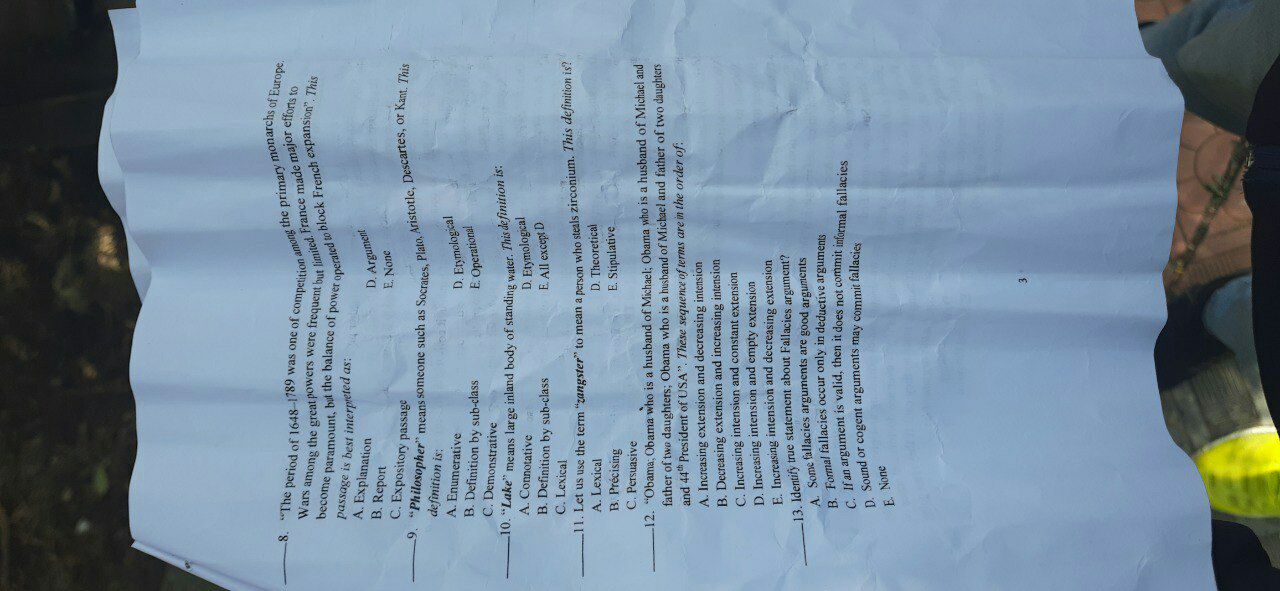 8. "The period of 1648–1789 was one of competition among the primary monarchs of Europe.
Wars among the great powers were frequent but limited. France made major efforts to
become paramount, but the balance of power operated to block French expansion". This
passage is best interpreted as:
A. Explanation D. Argument
B. Report E. None
C. Expository passage
9. "Philosopher" means someone such as Socrates, Plato, Aristotle, Descartes, or Kant. This
definition is:
A. Enumerative D. Etymological
B. Definition by sub-class E. Operational
C. Demonstrative
10. "Lake" means large inland body of standing water. This definition is:
A. Connotative D. Etymological
B. Definition by sub-class E. All except D
C. Lexical
11. Let us use the term "zangster" to mean a person who steals zirconium. This definition is?
A. Lexical D. Theoretical
B. Précising E. Stipulative
C. Persuasive
12. "Obama; Obama who is a husband of Michael; Obama who is a husband of Michael and
father of two daughters; Obama who is a husband of Michael and father of two daughters
and 44th President of USA". These sequence of terms are in the order of:
A. Increasing extension and decreasing intension
B. Decreasing extension and increasing intension
C. Increasing intension and constant extension
D. Increasing intension and empty extension
E. Increasing intension and decreasing extension
13. Identify true statement about Fallacies argument?
A. Some fallacies arguments are good arguments
B. Formal fallacies occur only in deductive arguments
C. If an argument is valid, then it does not commit informal fallacies
D. Sound or cogent arguments may commit fallacies
E. None
3